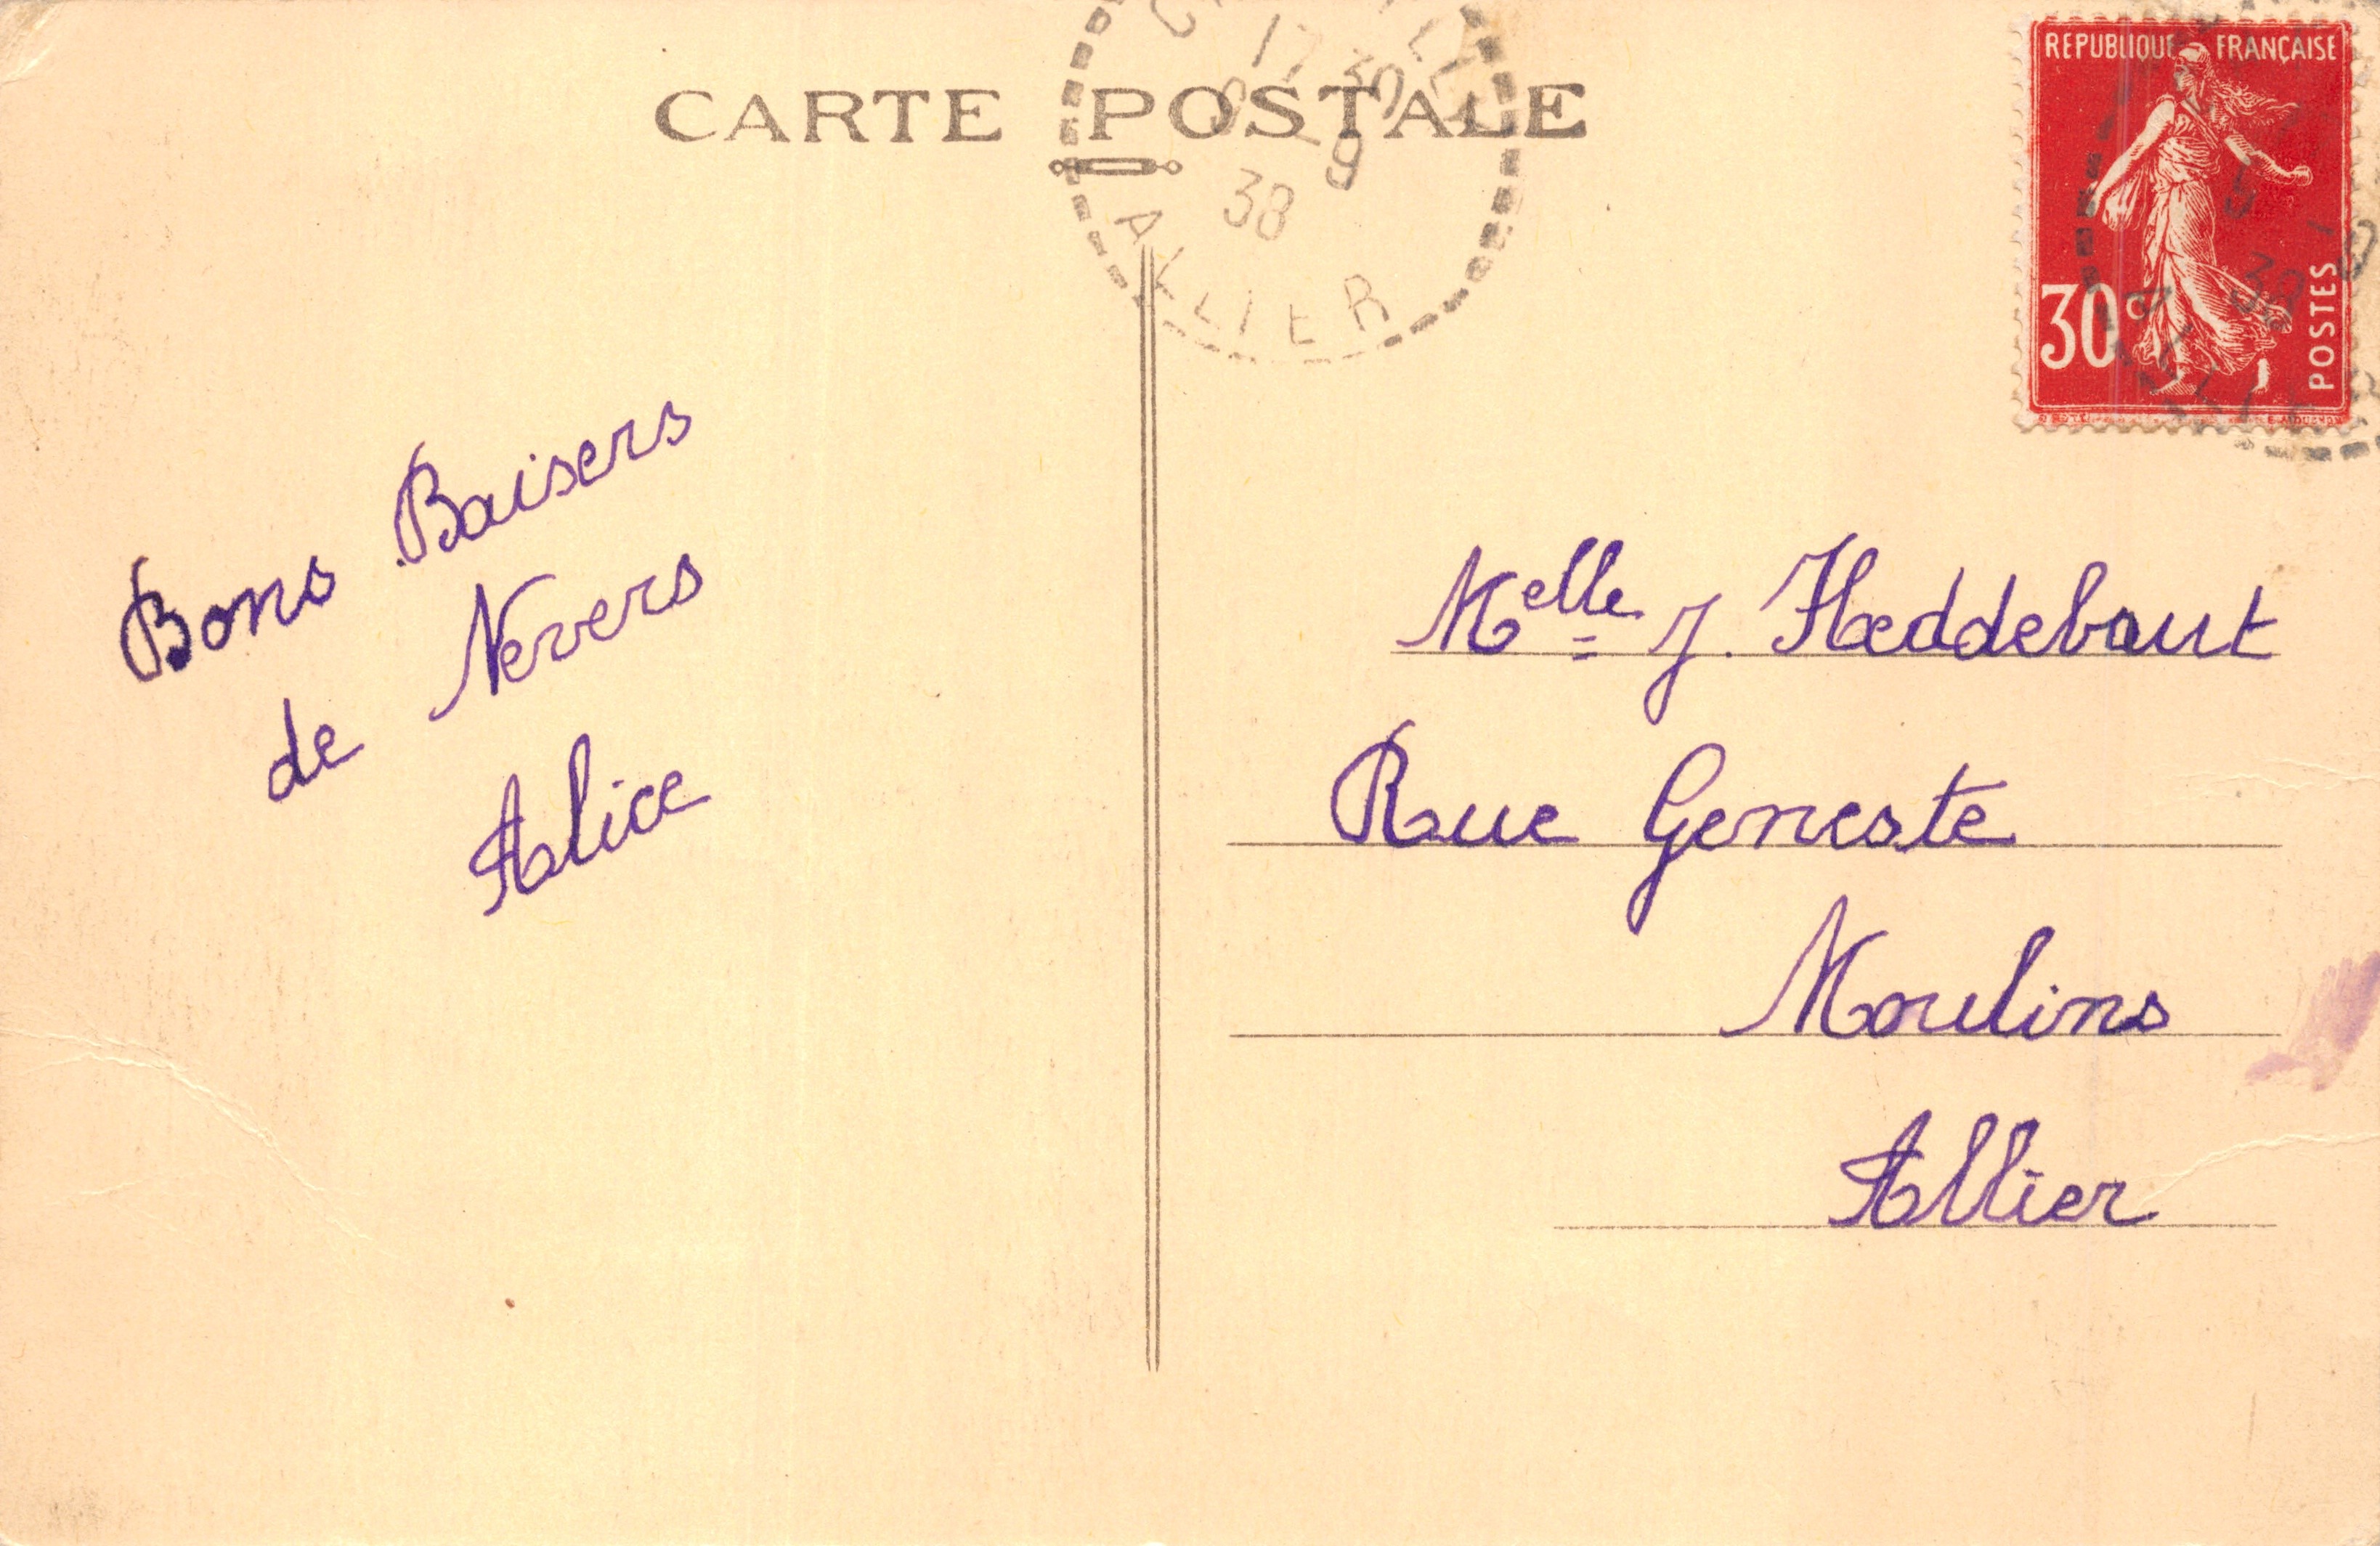 CARTE POSTALE
17 30
5 -9
38
ALLIER
REPUBLIQUE FRANÇAISE
30c
POSTES
5 -9
38
Bons Baisers
de Nevers
Alice
Melle J. Haeddebaut
Rue Geneste
Moulins
Allier